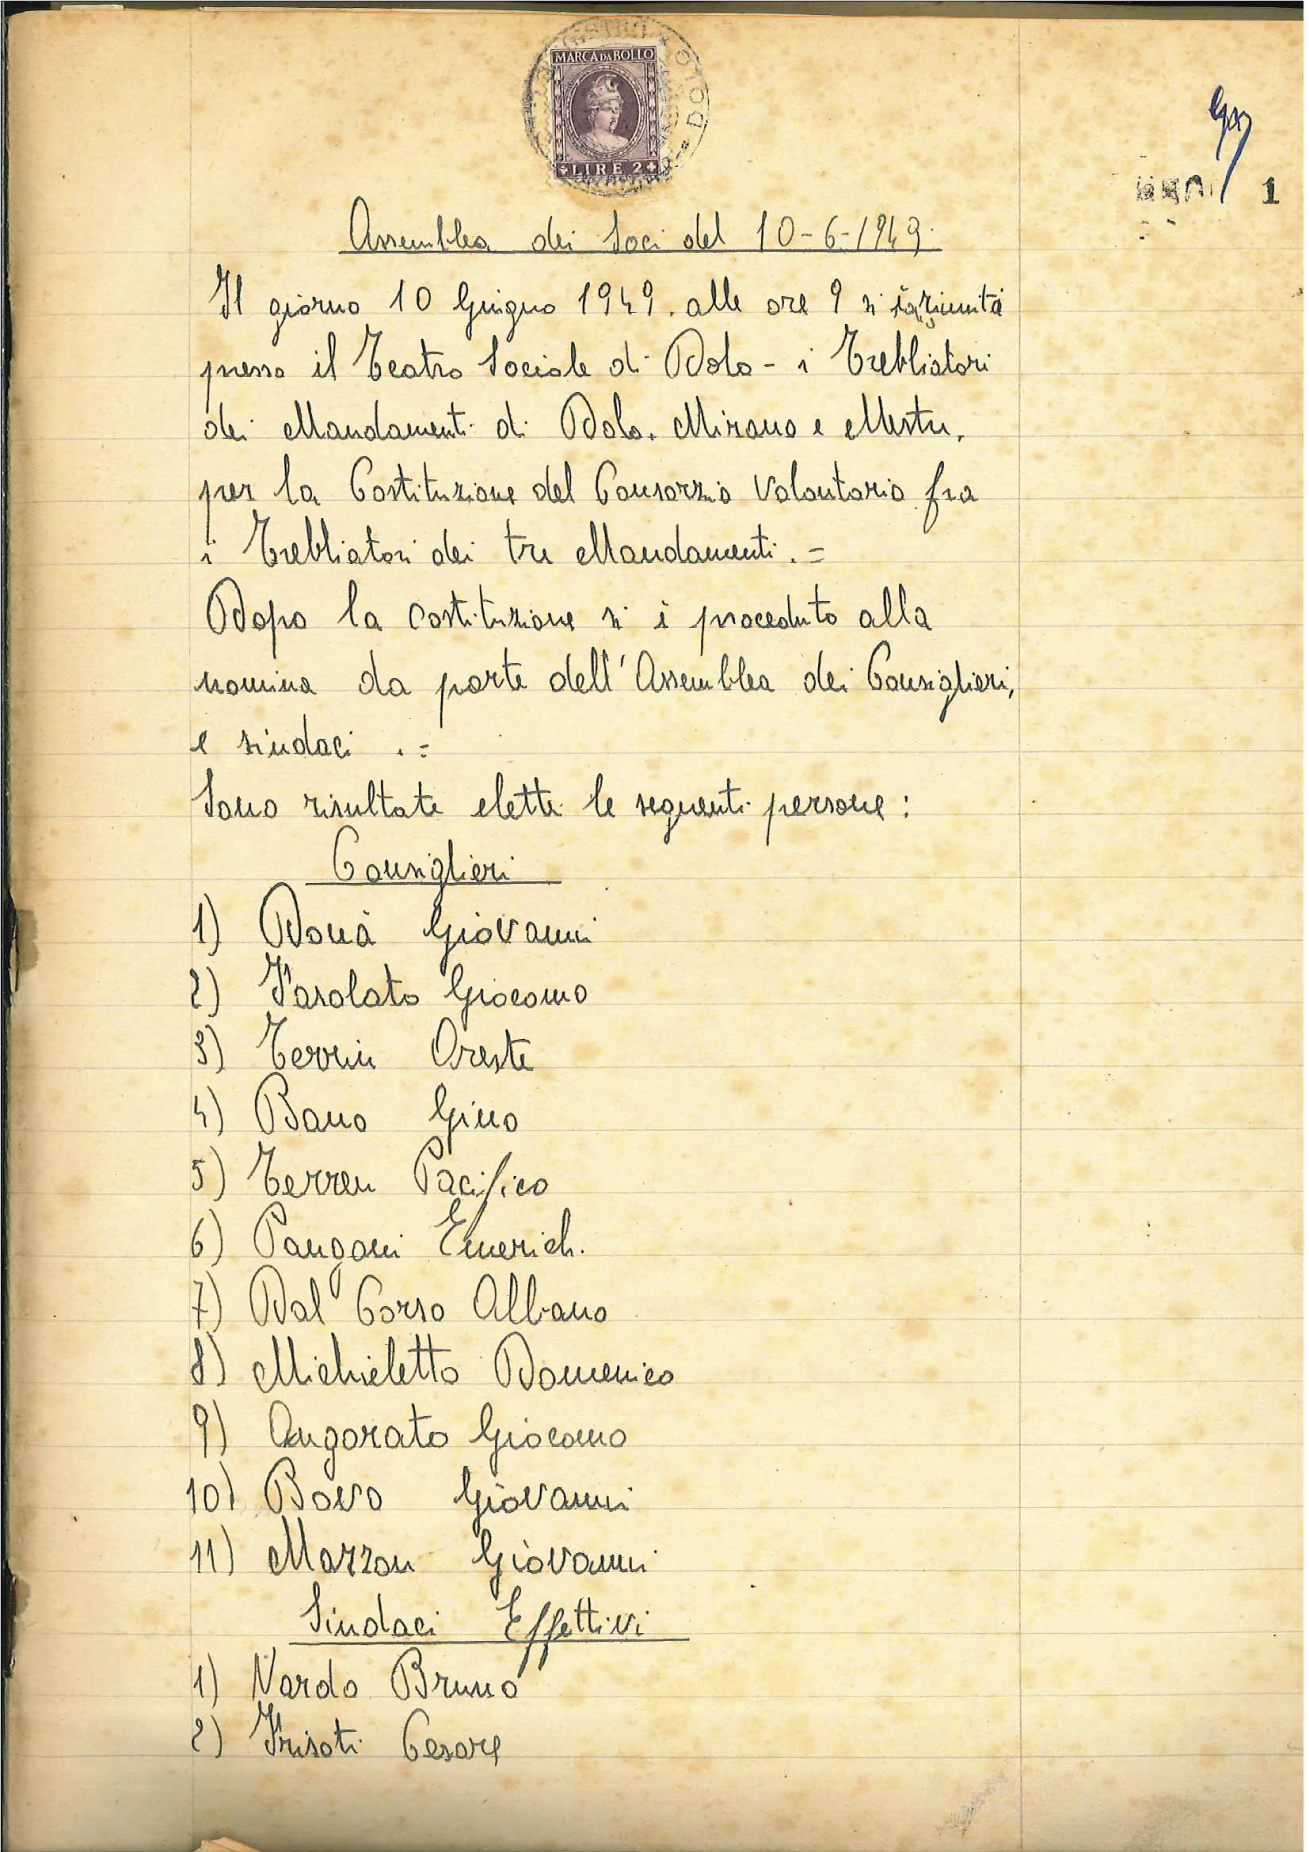 MARCA DA BOLLO
LIRE 2
DOLO
1
Assemblea dei Soci del 10-6-1949.
Il giorno 10 Giugno 1949. alle ore 9 si riunità
presso il Teatro Sociale di Dolo - i Trebbiatori
dei Mandamenti di Dolo. Mirano e Mestre.
per la Costituzione del Consorzio Volontario fra
i Trebbiatori dei tre Mandamenti. =
Dopo la costituzione si è proceduto alla
nomina da parte dell'Assemblea dei Consiglieri,
e sindaci . =
Sono risultate elette le seguenti persone :
Consiglieri
1) Donà Giovanni
2) Fasolato Giacomo
3) Terrin Oreste
4) Bano Gino
5) Terren Pacifico
6) Pangoni Emerich.
7) Dal Corso Albano
8) Michieletto Domenico
9) Angorato Giacomo
10) Bovo Giovanni
11) Mazzon Giovanni
Sindaci Effettivi
1) Nardo Bruno
2) Frisoti Cesare